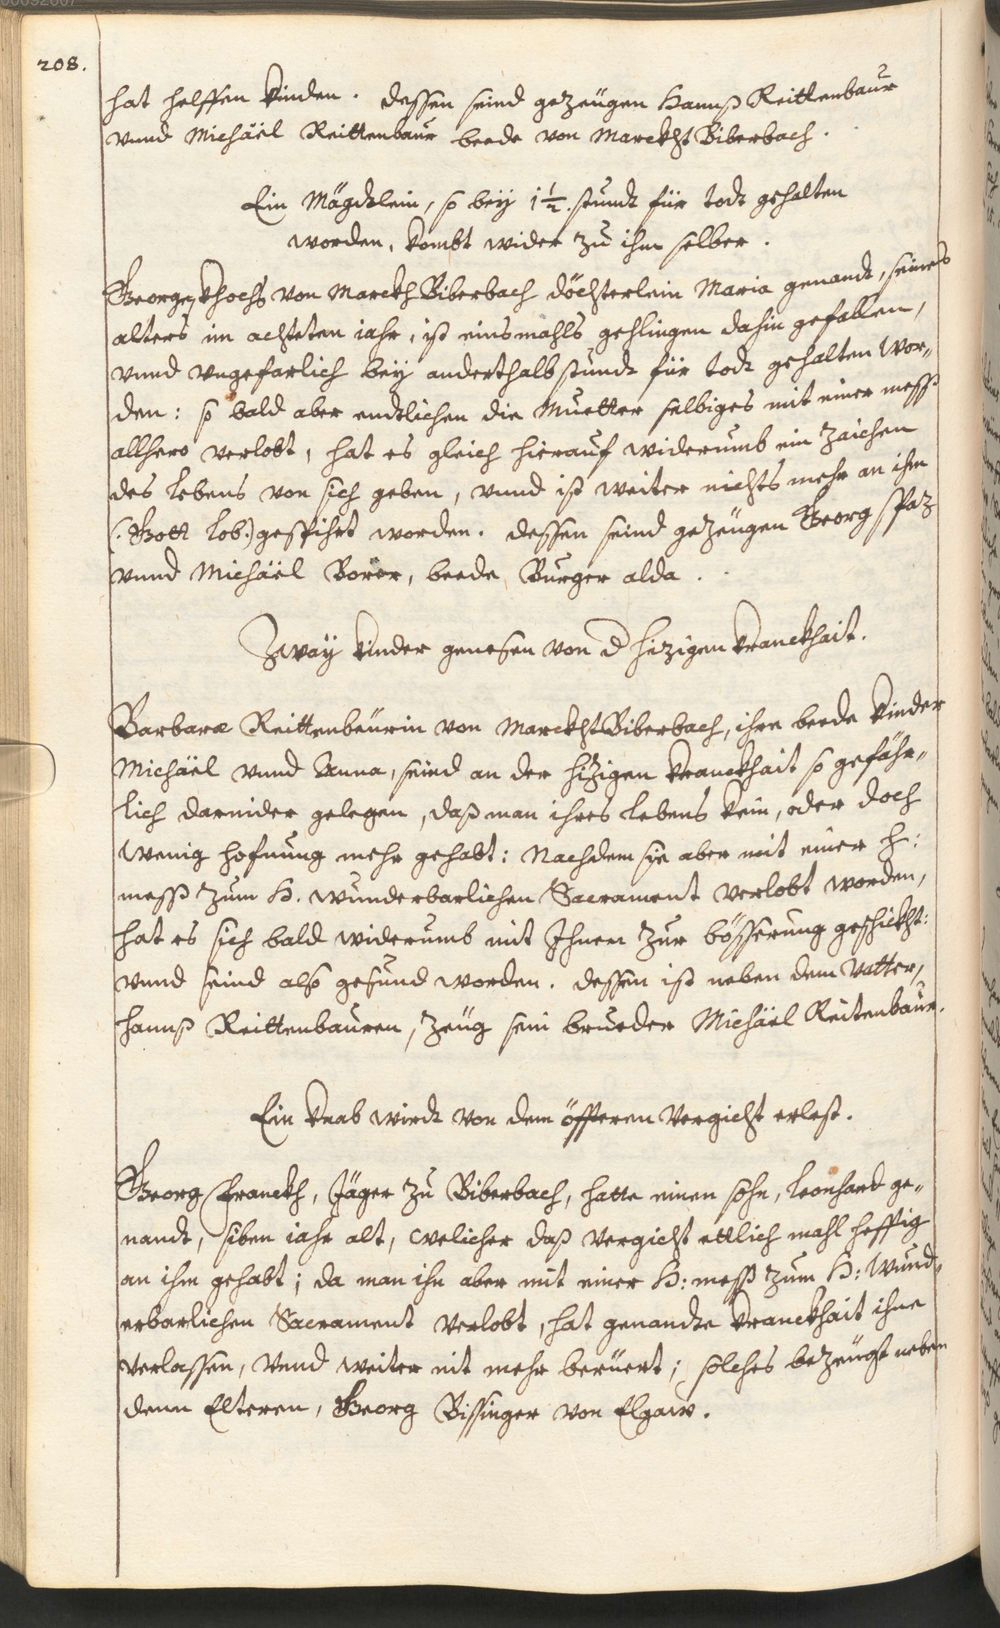 208.
hat helffen kinden. dessen seind gezeügen Hannß Reittenbaur
vnnd Michäel Reittenbaur beede von Marckht Biberbach.
Ein Mägdtlein, so beÿ 1 1/2. stundt für todt gehalten
worden, kombt wider zu ihm selber.
Georgen Khochs von Marckh Biberbach döchterlein Maria genandt, seines
alters im achteten iahr, ist einsmahls gehlingen dahin gefallen,
vnnd vngefarlich beÿ anderthalb stundt für todt gehalten wor„
den: so bald aber endtlichen die Muetter selbiges mit einer mess
allhero verlobt, hat es gleich hierauf widerumb ein zaichen
des lebens von sich geben, vnnd ist weiter nichts mehr an ihm
(. Gott lob.) gespihrt worden. dessen seind gezeügen Georg Spaz
vnnd Michäel Borer, beede Burger alda.
Zwaÿ kinder genesen von d hizigen kranckhait.
Barbaræ Reittenbeürin von Marckht Biberbach, ihre beede kinder
Michäel vnnd Anna, seind an der hizigen kranckhait so gefähr„
lich darnider gelegen, daß man ihres lebens kein, oder doch
wenig hofnung mehr gehabt: Nachdem sie aber mit einer h:
mess zum H. wunderbarlichen Sacrament verlobt worden,
hat es sich bald widerumb mit Ihnen zur bösserung geschickht:
vnnd seind also gesund worden. dessen ist neben dem Vatter,
hannß Reittenbauren, zeüg sein brueder Michäel Reitenbaur.
Ein knab wirdt von dem öffteren Vergicht erlest.
Georg Franckh, Jäger zu Biberbach, hatte einen sohn, leonhard ge„
nandt, siben iahr alt, welicher daß Vergicht ettlich mahl hefftig
an ihm gehabt; da man ihn aber mit einer H: mess zum H: Wund„
erbarlichen Sacrament verlobt, hat genandte kranckhait ihne
verlassen, vnnd weiter nit mehr berüert; solches bezeügt neben
denn Elteren, Georg Bissinger von Elgaw.